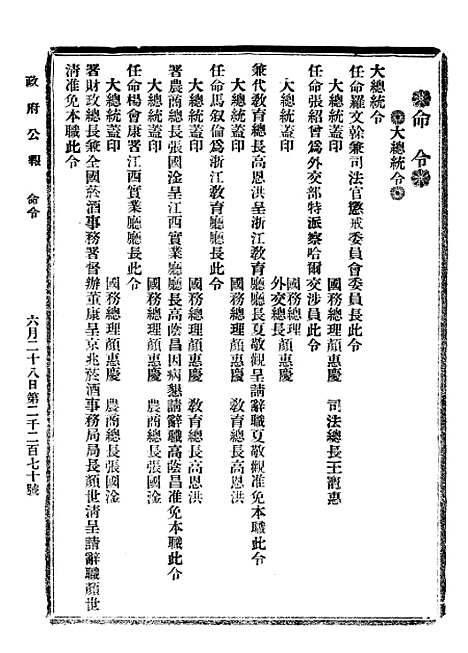 命令
大總統令
大總統令
任命羅文幹兼司法官懲戒委員會委員長此令
大總統蓋印
國務總理顏惠慶 司法總長王寵惠
任命張紹曾爲外交部特派察哈爾交涉員此令
大總統蓋印
國務總理
外交總長顏惠慶
兼代教育總長高恩洪呈浙江教育廳廳長夏敬觀呈請辭職夏敬觀准免本職此令
大總統蓋印
國務總理顏惠慶 教育總長高恩洪
任命馬叙倫爲浙江教育廳廳長此令
大總統蓋印
國務總理顏惠慶 教育總長高恩洪
署農商總長張國淦呈江西實業廳廳長高蔭昌因病懇請辭職高蔭昌准免本職此令
大總統蓋印
國務總理顏惠慶 農商總長張國淦
任命楊會康署江西實業廳廳長此令
大總統蓋印
國務總理顏惠慶 農商總長張國淦
署財政總長兼全國菸酒事務署督辦董康呈京兆菸酒事務局局長顏世清呈請辭職顏世
清准免本職此令
政府公報 命令
六月二十八日第二千二百七十號